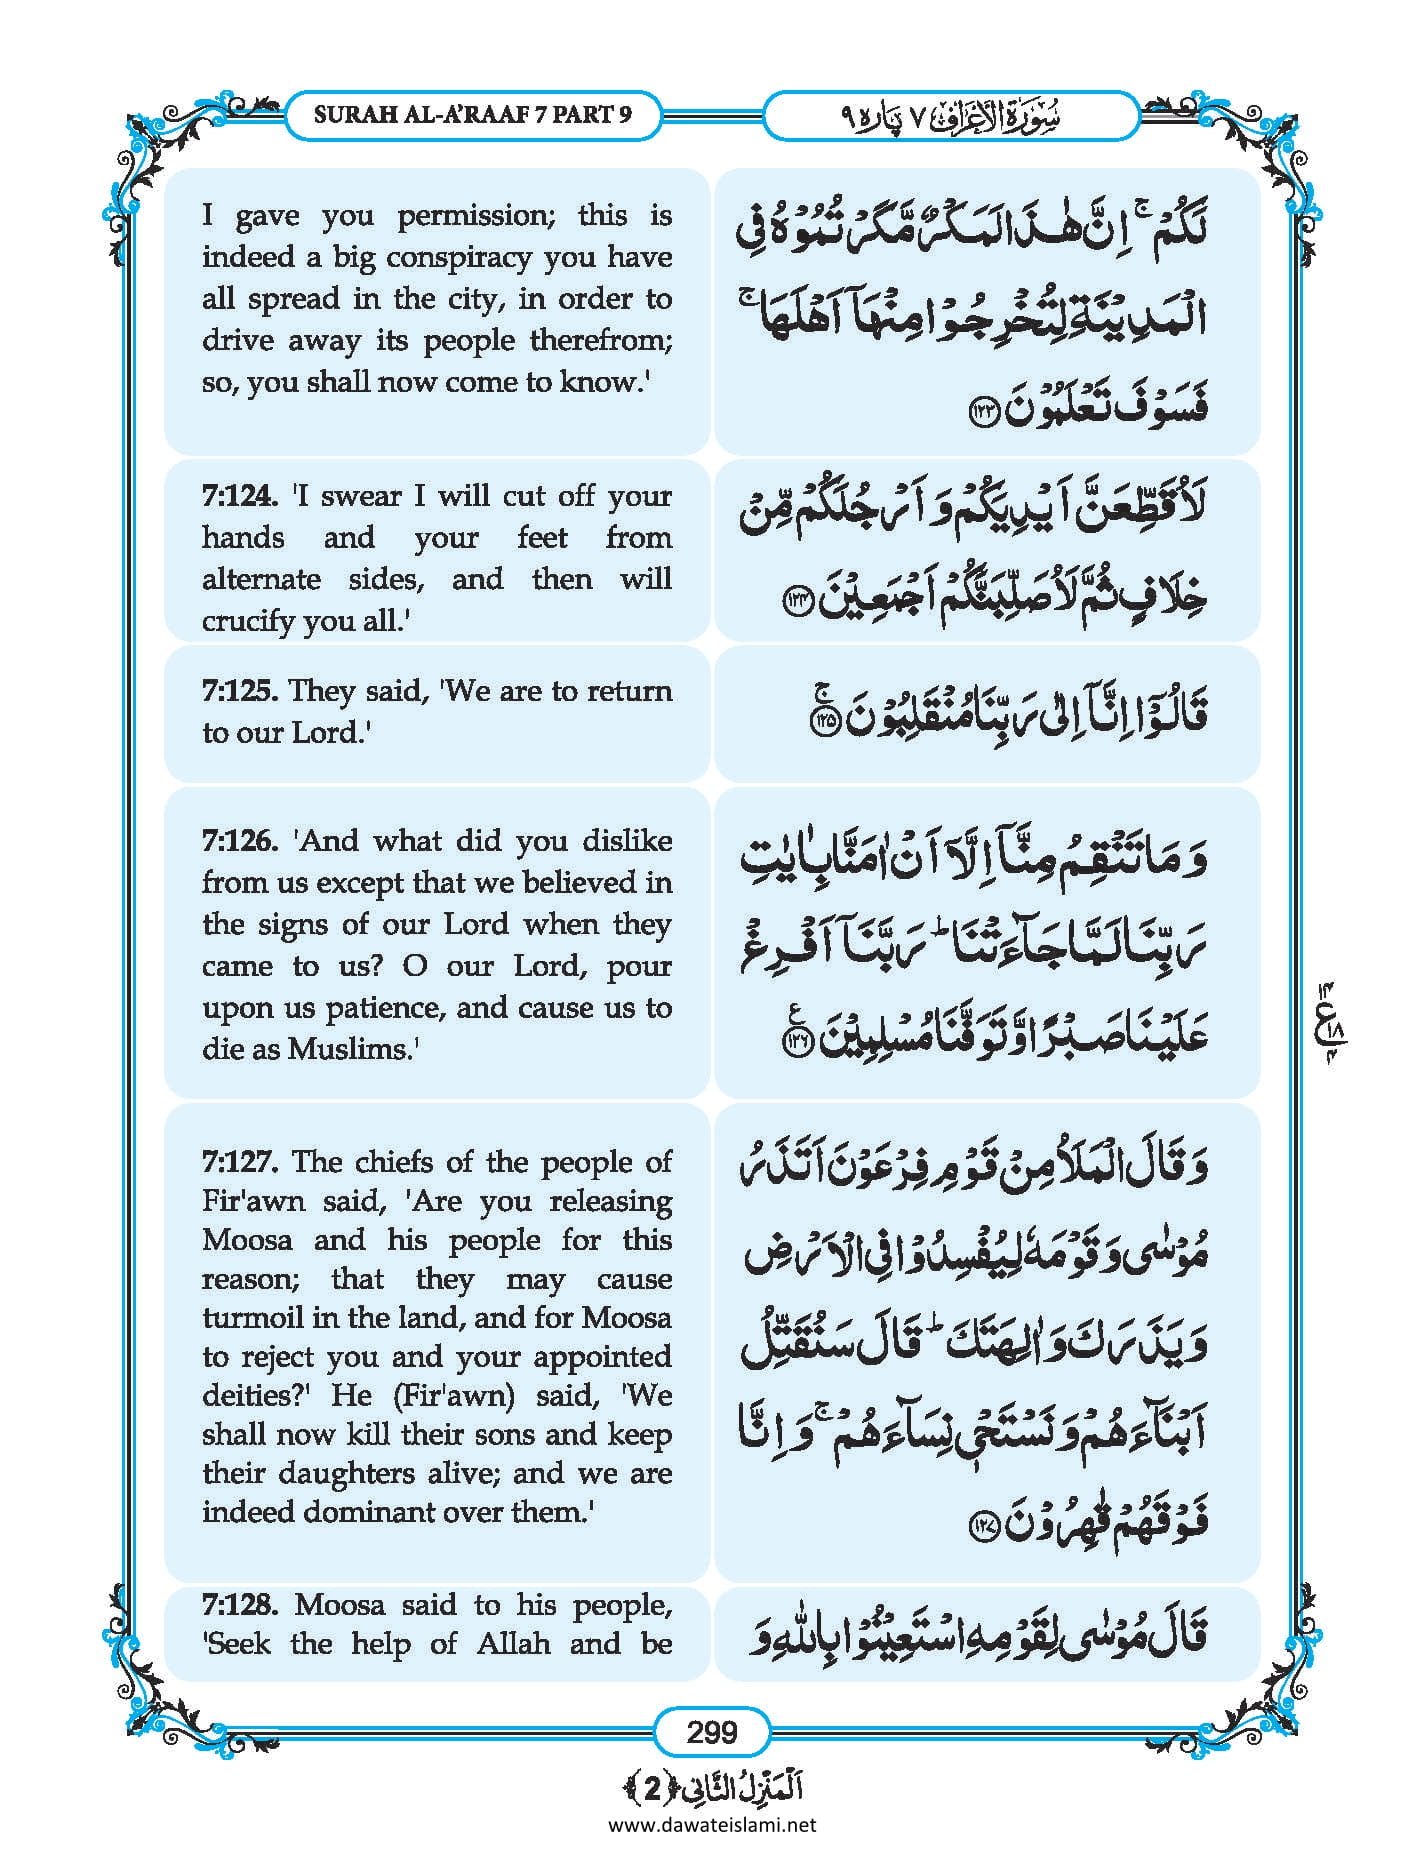 SURAH AL-A'RAAF 7 PART 9
سُوْرَةُ الْاَعْرَاف ٧ پارہ ٩
I gave you permission; this is
indeed a big conspiracy you have
all spread in the city, in order to
drive away its people therefrom;
so, you shall now come to know.'
لَكُمْ ۚ اِنَّ هٰذَا لَمَكْرٌ مَّكَرْتُمُوْهُ فِی
الْمَدِیْنَةِ لِتُخْرِجُوْا مِنْهَاۤ اَهْلَهَا ۚ
فَسَوْفَ تَعْلَمُوْنَ ﴿۱۲۳﴾
7:124. 'I swear I will cut off your
hands and your feet from
alternate sides, and then will
crucify you all.'
لَاُقَطِّعَنَّ اَیْدِیَكُمْ وَ اَرْجُلَكُمْ مِّنْ
خِلَافٍ ثُمَّ لَاُصَلِّبَنَّكُمْ اَجْمَعِیْنَ ﴿۱۲۴﴾
7:125. They said, 'We are to return
to our Lord.'
قَالُوْۤا اِنَّاۤ اِلٰی رَبِّنَا مُنْقَلِبُوْنَ ﴿۱۲۵﴾ۚ
7:126. 'And what did you dislike
from us except that we believed in
the signs of our Lord when they
came to us? O our Lord, pour
upon us patience, and cause us to
die as Muslims.'
وَ مَا تَنْقِمُ مِنَّاۤ اِلَّاۤ اَنْ اٰمَنَّا بِاٰیٰتِ
رَبِّنَا لَمَّا جَآءَتْنَا ؕ رَبَّنَاۤ اَفْرِغْ
عَلَیْنَا صَبْرًا وَّ تَوَفَّنَا مُسْلِمِیْنَ ﴿۱۲۶﴾ ع
۱۴
ع ۱۸
۴
7:127. The chiefs of the people of
Fir'awn said, 'Are you releasing
Moosa and his people for this
reason; that they may cause
turmoil in the land, and for Moosa
to reject you and your appointed
deities?' He (Fir'awn) said, 'We
shall now kill their sons and keep
their daughters alive; and we are
indeed dominant over them.'
وَ قَالَ الْمَلَاُ مِنْ قَوْمِ فِرْعَوْنَ اَتَذَرُ
مُوْسٰی وَ قَوْمَهٗ لِیُفْسِدُوْا فِی الْاَرْضِ
وَ یَذَرَكَ وَ اٰلِهَتَكَ ؕ قَالَ سَنُقَتِّلُ
اَبْنَآءَهُمْ وَ نَسْتَحْیٖ نِسَآءَهُمْ ۚ وَ اِنَّا
فَوْقَهُمْ قٰهِرُوْنَ ﴿۱۲۷﴾
7:128. Moosa said to his people,
'Seek the help of Allah and be
قَالَ مُوْسٰی لِقَوْمِهِ اسْتَعِیْنُوْا بِاللّٰهِ وَ
299
اَلْمَنْزِلُ الثَّانِی ﴿2﴾
www.dawateislami.net